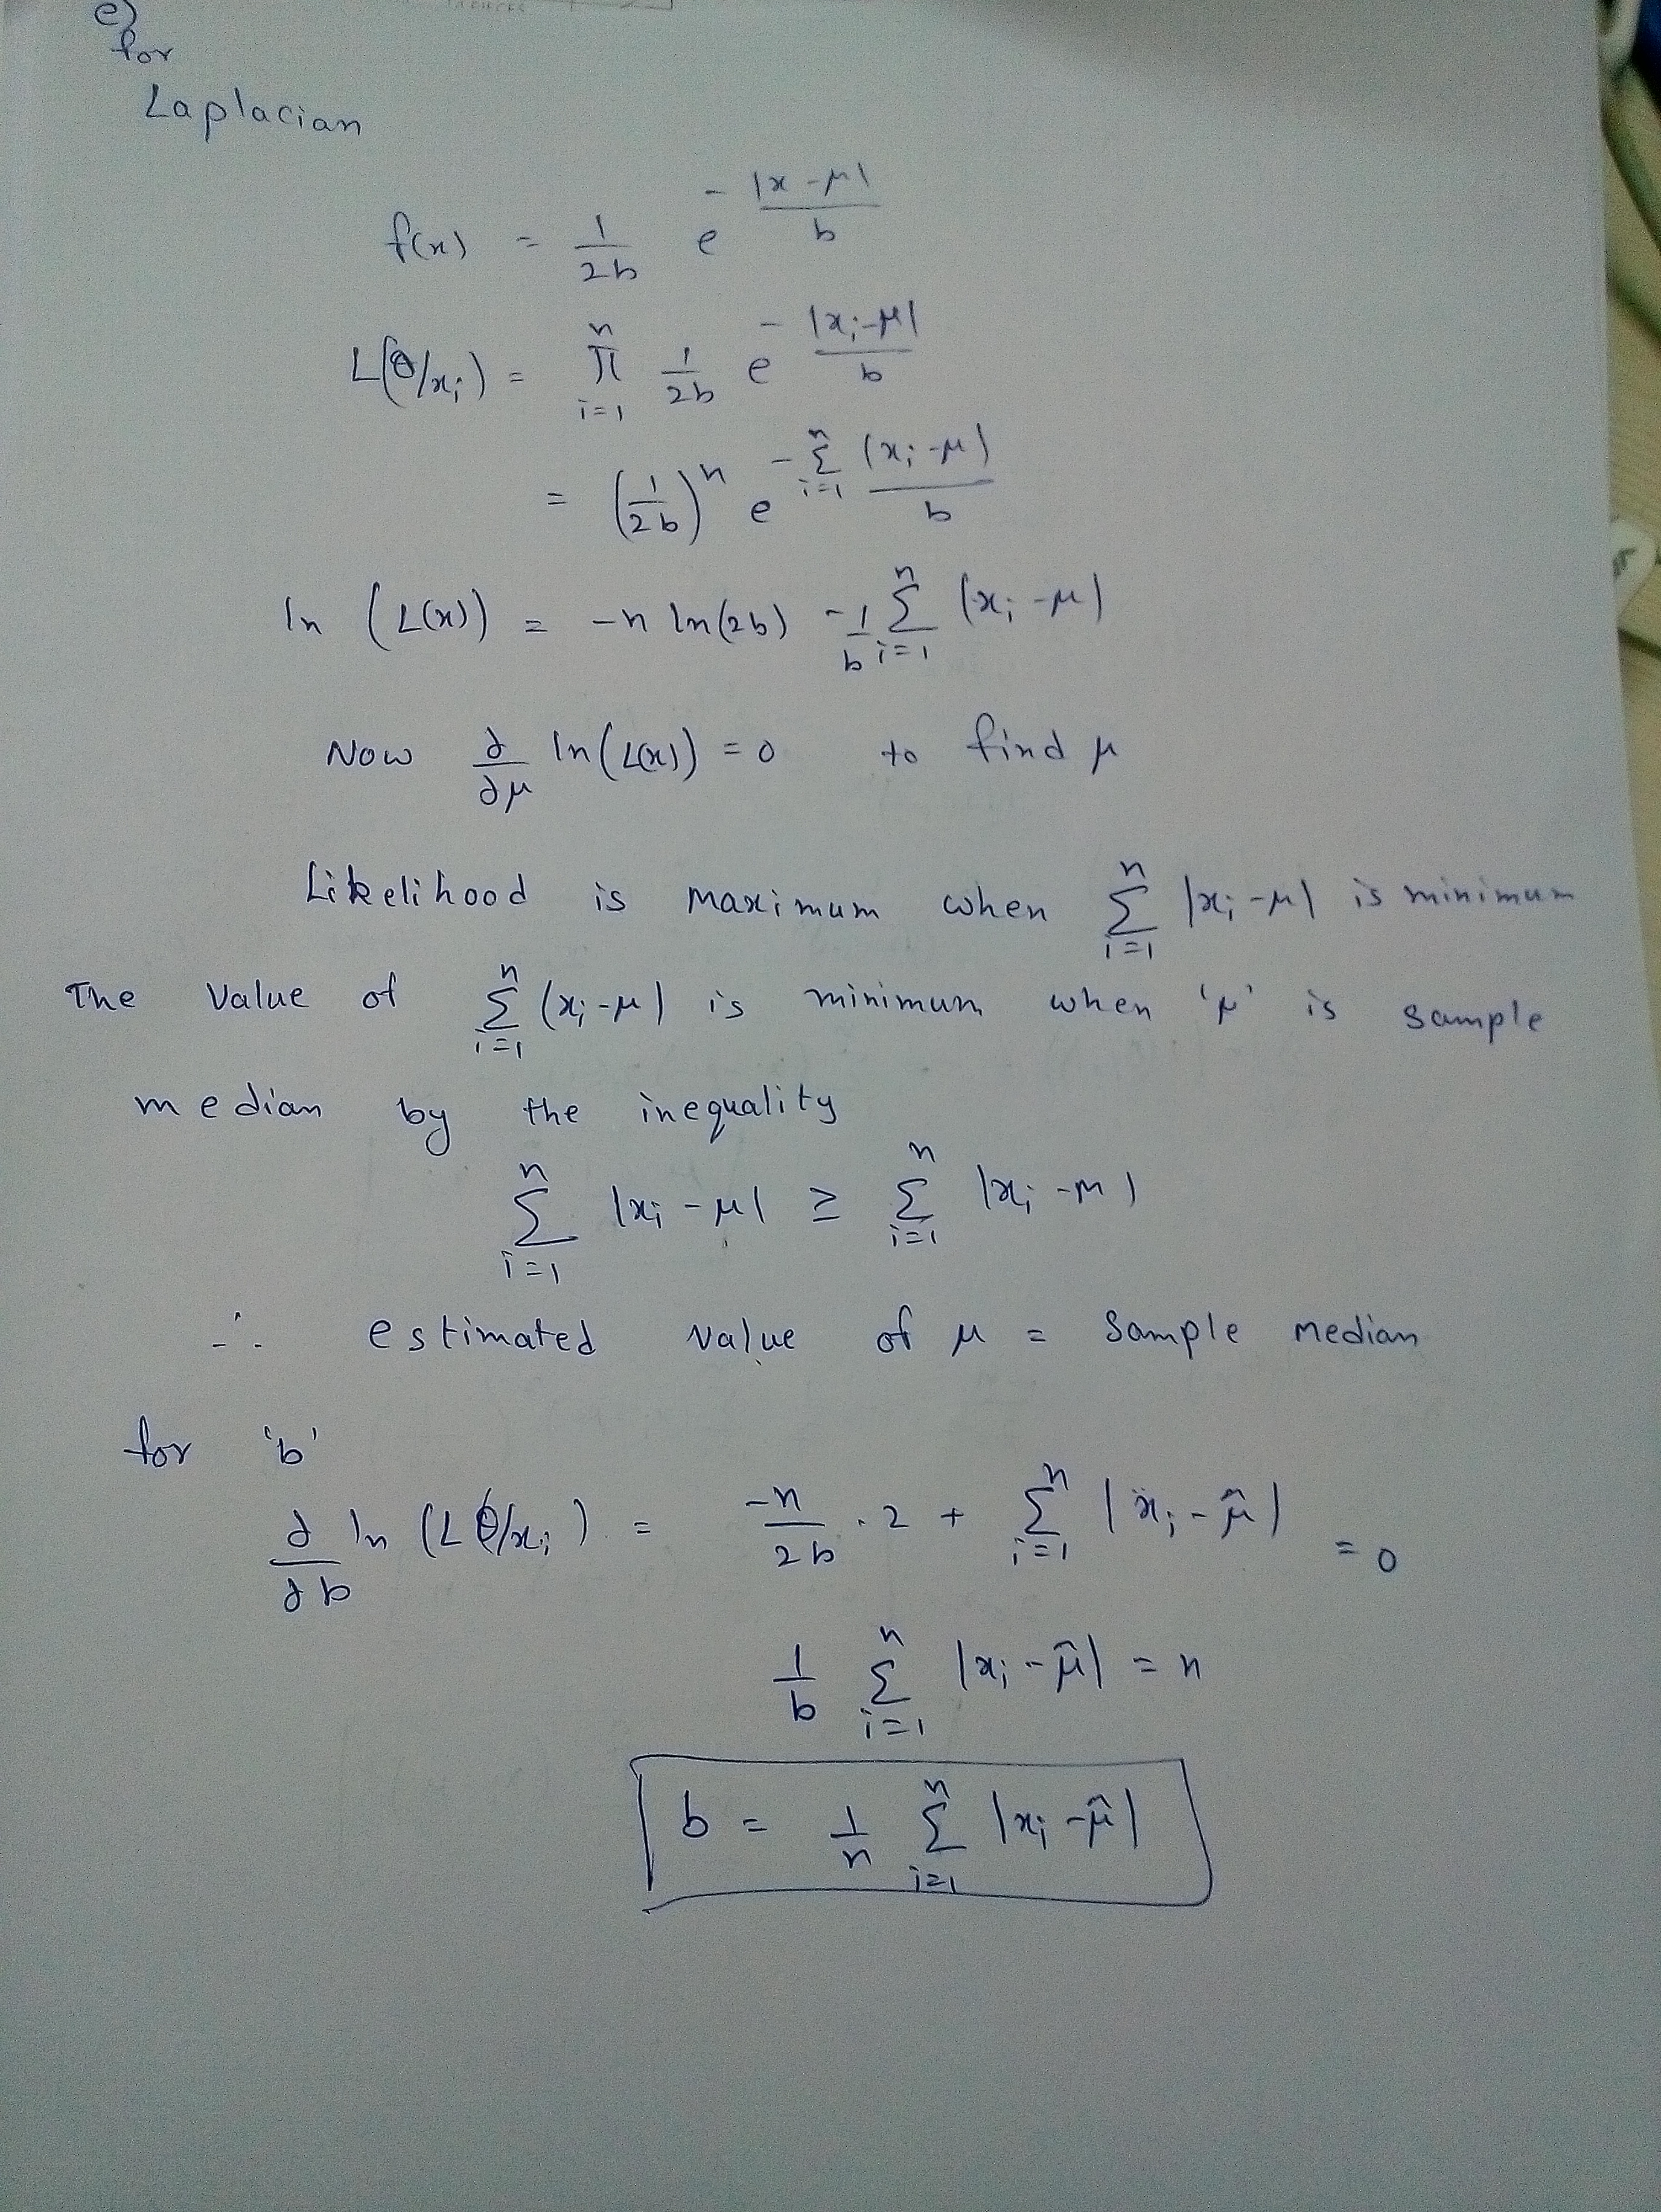 e)
for
Laplacian
f(x) = 1/2b e^(-|x-μ|/b)
L(θ/x_i) = π_{i=1}^{n} 1/2b e^(-|x_i-μ|/b)
= (1/2b)^n e^(-Σ_{i=1}^{n} (x_i-μ)/b)
ln (L(x)) = -n ln(2b) - 1/b Σ_{i=1}^{n} (x_i-μ)
Now ∂/∂μ ln(L(x)) = 0 to find μ
Likelihood is maximum when Σ_{i=1}^{n} |x_i-μ| is minimum
The value of Σ_{i=1}^{n} (x_i-μ) is minimum when 'μ' is sample
median by the inequality
Σ_{i=1}^{n} |x_i-μ| ≥ Σ_{i=1}^{n} |x_i-m|
∴ estimated value of μ = sample median
for 'b'
∂/∂b ln (L θ/x_i) = -n/2b . 2 + Σ_{i=1}^{n} |x_i-μ̂| = 0
1/b Σ_{i=1}^{n} |x_i-μ̂| = n
b = 1/n Σ_{i=1}^{n} |x_i-μ̂|